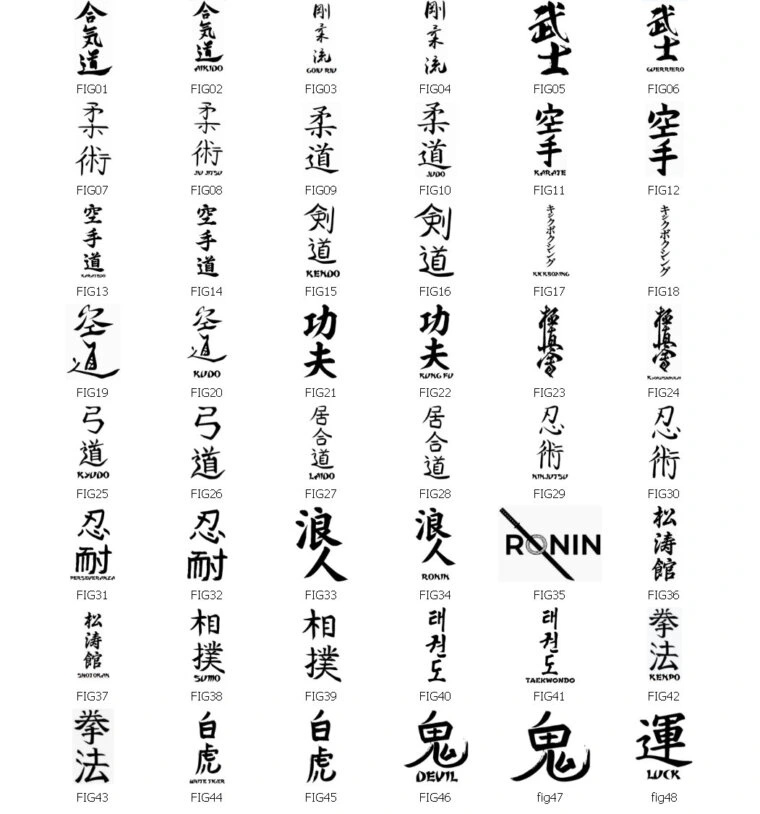 合気道
FIG01
合気道
AIKIDO
FIG02
剛柔流
GOIU RIU
FIG03
剛柔流
FIG04
武士
FIG05
武士
GUERRIERO
FIG06
柔術
FIG07
柔術
JIU JITSU
FIG08
柔道
FIG09
柔道
JUDO
FIG10
空手
KARATE
FIG11
空手
FIG12
空手道
KARATEDO
FIG13
空手道
FIG14
剣道
KENDO
FIG15
剣道
FIG16
キックボクシング
KICKBOXING
FIG17
キックボクシング
FIG18
空道
FIG19
空道
KUDO
FIG20
功夫
FIG21
功夫
KUNG FU
FIG22
極真会
FIG23
極真会
FIG24
弓道
KYUDO
FIG25
弓道
FIG26
居合道
LAIDO
FIG27
居合道
FIG28
忍術
NINJUTSU
FIG29
忍術
FIG30
忍耐
PERSEVERANZA
FIG31
忍耐
FIG32
浪人
FIG33
浪人
RONIN
FIG34
RONIN
FIG35
松涛館
FIG36
松涛館
SHOTOKAN
FIG37
相撲
SUMO
FIG38
相撲
FIG39
태권도
FIG40
태권도
TAEKWONDO
FIG41
拳法
KENPO
FIG42
拳法
FIG43
白虎
WHITE TIGER
FIG44
白虎
FIG45
鬼
DEVIL
FIG46
鬼
fig47
運
LUCK
fig48